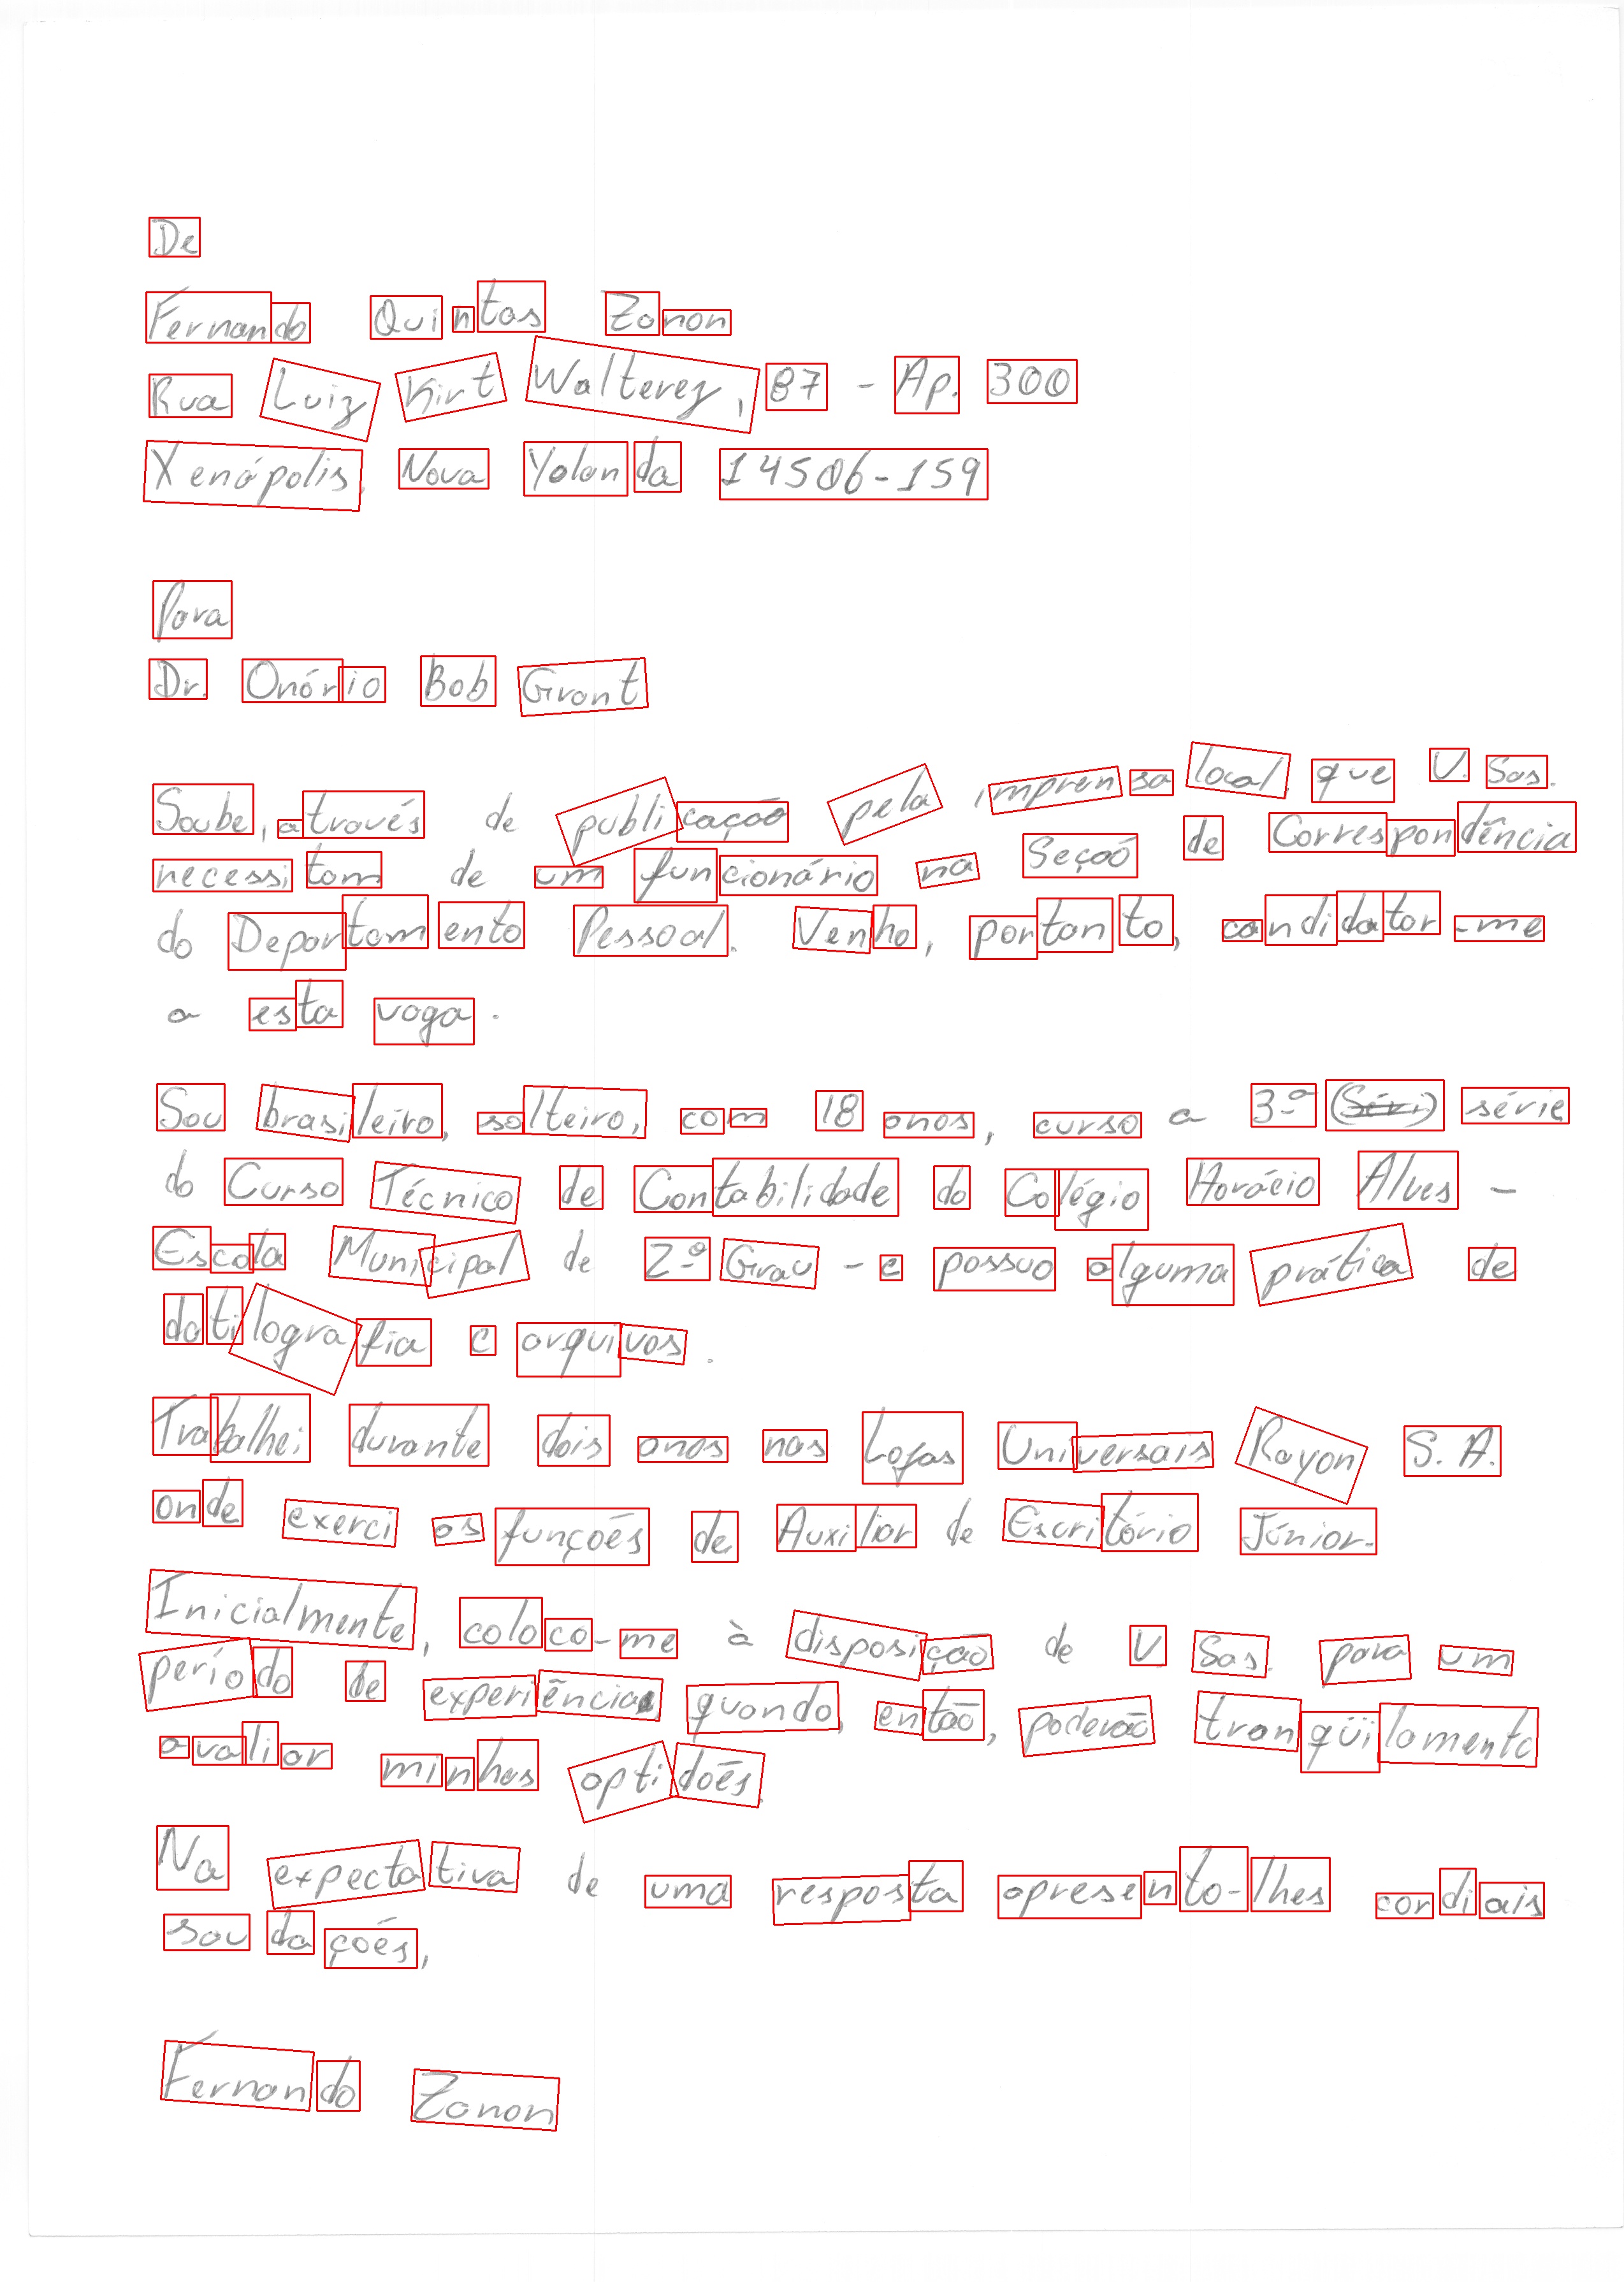 De
Fernando Quintas Zanon
Rua Luiz Kirt Walterez, 87 - Ap. 300
Xenápolis, Nova Yolanda 14506-159
Para
Dr. Onório Bob Grant
Soube, através de publicação pela imprensa local, que V. Sas.
necessitam de um funcionário na Seção de Correspondência
do Departamento Pessoal. Venho, portanto, candidatar-me
a esta vaga.
Sou brasileiro, solteiro, com 18 anos, curso a 3.ª (Séri) série
do Curso Técnico de Contabilidade do Colégio Horácio Alves -
Escola Municipal de 2.º Grau - e possuo alguma prática de
datilografia e arquivos.
Trabalhei durante dois anos nas Lojas Universais Rayon S. A.
onde exerci as funções de Auxiliar de Escritório Júnior.
Inicialmente, coloco-me à disposição de V. Sas. para um
período de experiência quando, então, poderão tranqüilamente
avaliar minhas aptidões.
Na expectativa de uma resposta apresento-lhes cordiais
saudações,
Fernando Zanon